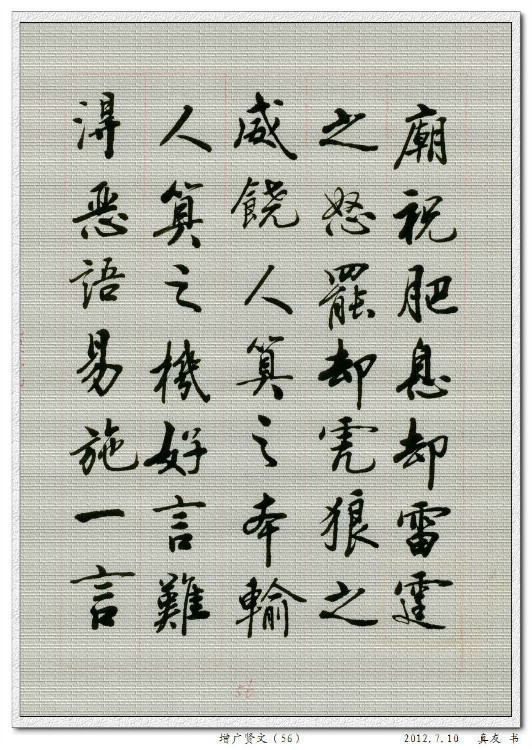 廟祝肥息却雷霆
之怒罷却虎狼之
威饒人算之本輸
人算之機好言難
得惡語易施一言
56
增广贤文（56）
2012.7.10 真友 书